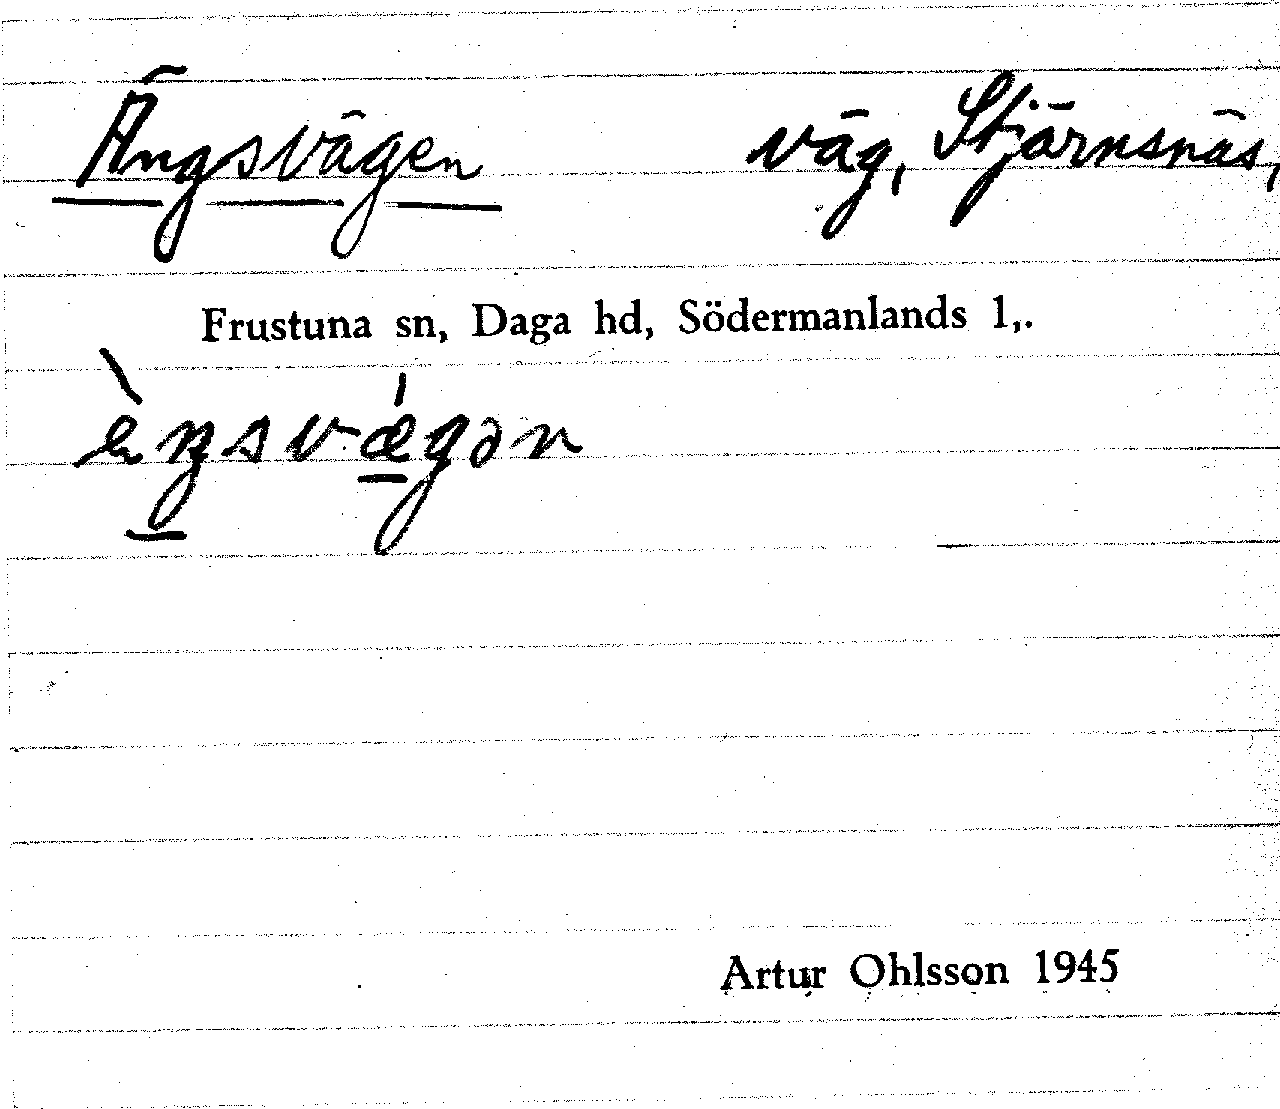 Ängsvägen väg, Stjärnsnäs,
Frustuna sn, Daga hd, Södermanlands l,.
èŋsvǽgən
Artur Ohlsson 1945